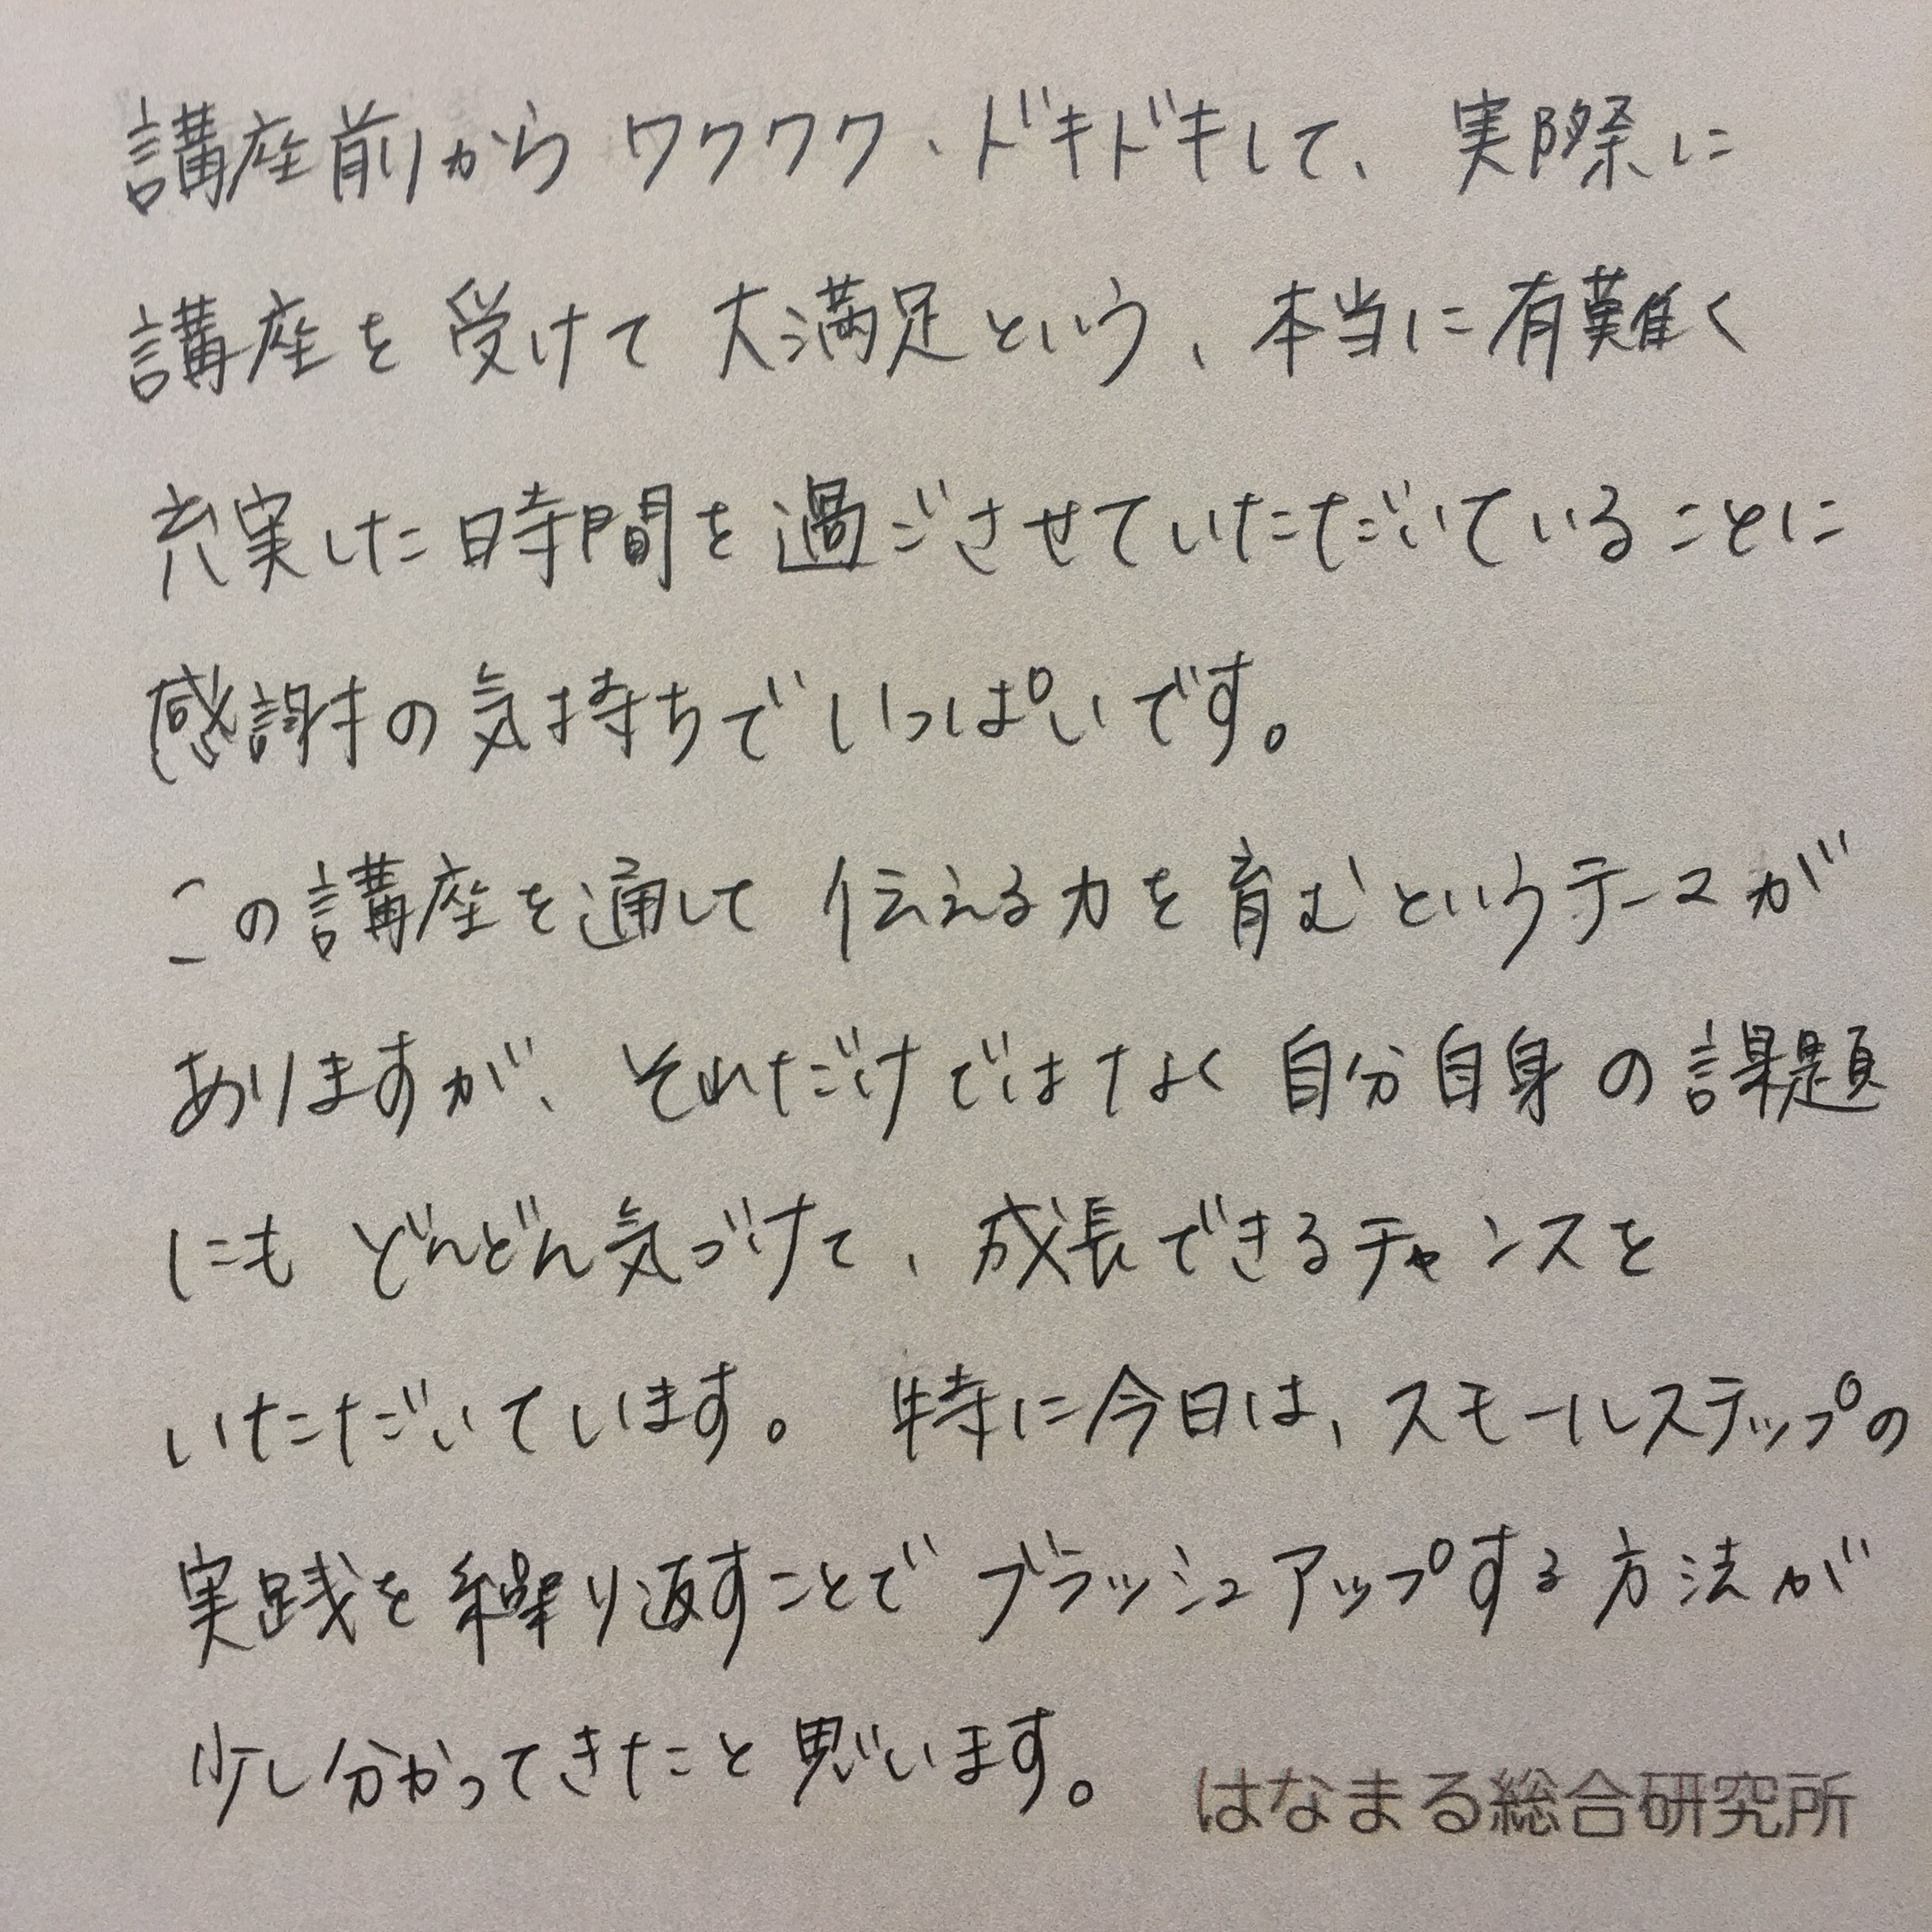 講座前から ワクワク、ドキドキして、実際に
講座を受けて 大満足という、本当に有難く
充実した時間を過ごさせていただいていることに
感謝の気持ちでいっぱいです。
この講座を通して 伝える力を育むというテーマが
ありますが、それだけではなく自分自身の課題
にも どんどん気づけて、成長できるチャンスを
いただいています。 特に今日は、スモールステップの
実践を繰り返すことでブラッシュアップする方法が
少し分かってきたと思います。
はなまる総合研究所